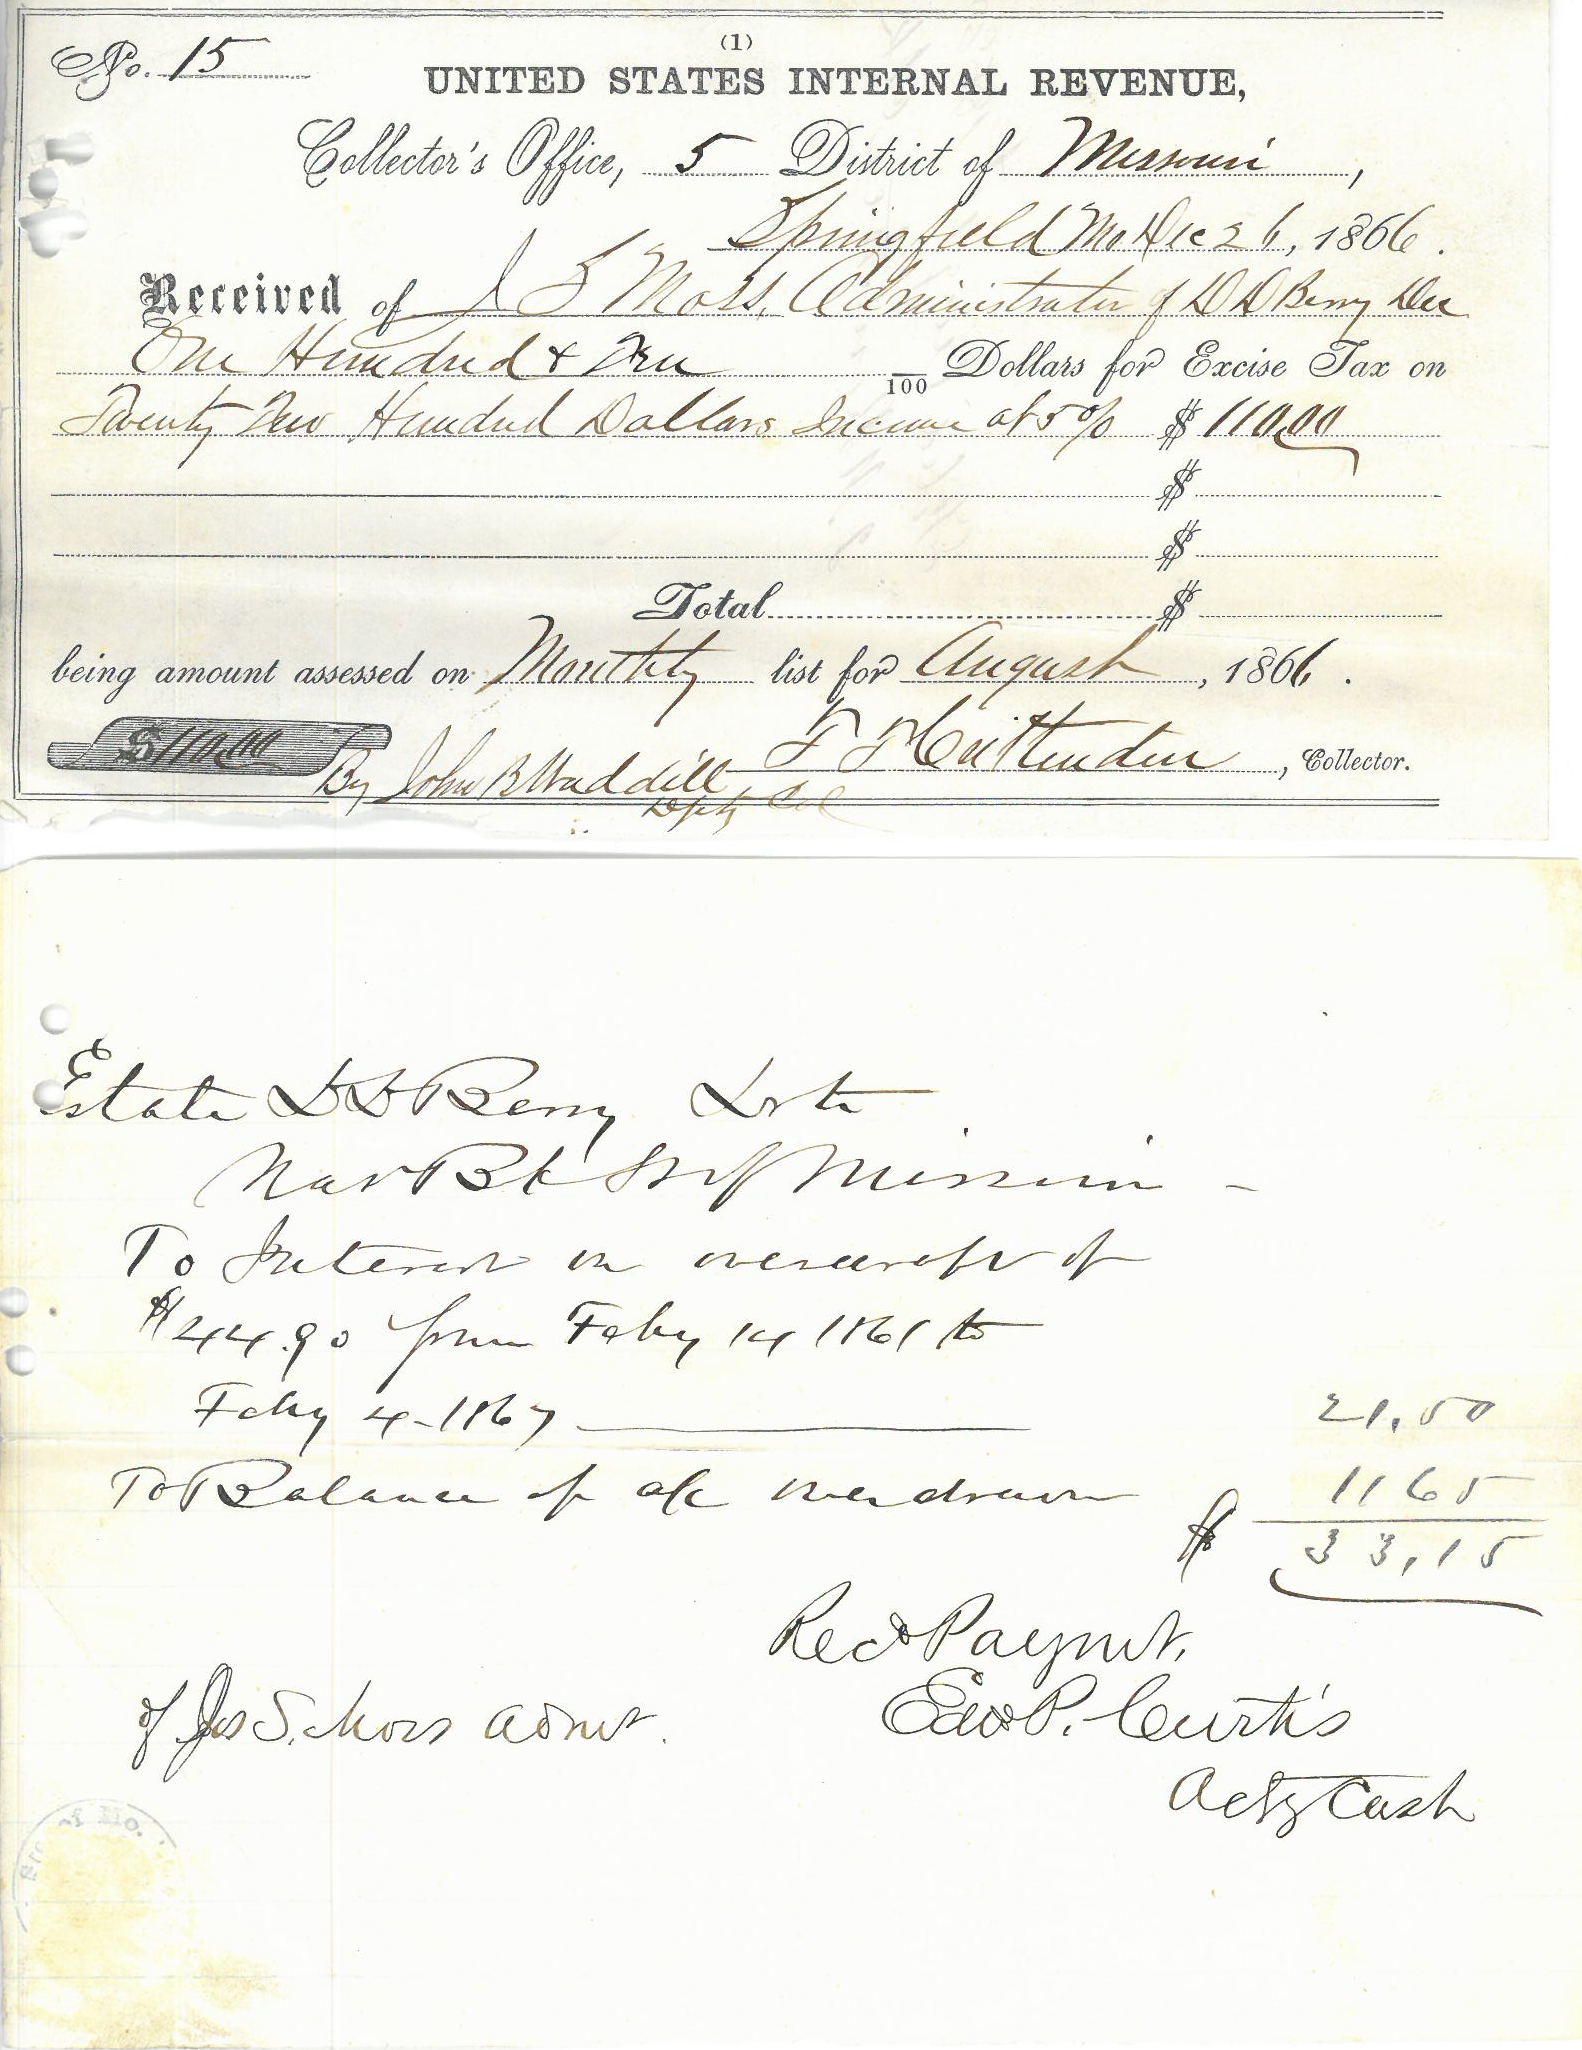 No. 15
(1)
UNITED STATES INTERNAL REVENUE,
Collector's Office, 5 District of Missouri,
Springfield Mo Dec 26, 1866.
Received of J S Moss, Administrator of D D Berry Dec
One Hundred & Ten /100 Dollars for Excise Tax on
Twenty Two Hundred Dollars Income at 5% $ 110.00
$
$
Total $
being amount assessed on Monthly list for August, 1866.
$110.00 By John B Waddill T T Crittenden, Collector.
Dpty Col
Estate D D Berry Dr to
Bk St of Missouri -
To Interest on overdraft of
$44.90 from Feby 14 1861 to
Feby 4 - 1867 21.50
To Balance of a/c overdrawn 1165
$ 33.15
Recd Paymt.
of Jas S. Moss Admr. Edw P. Curtis
Actg Cash
of Mo.